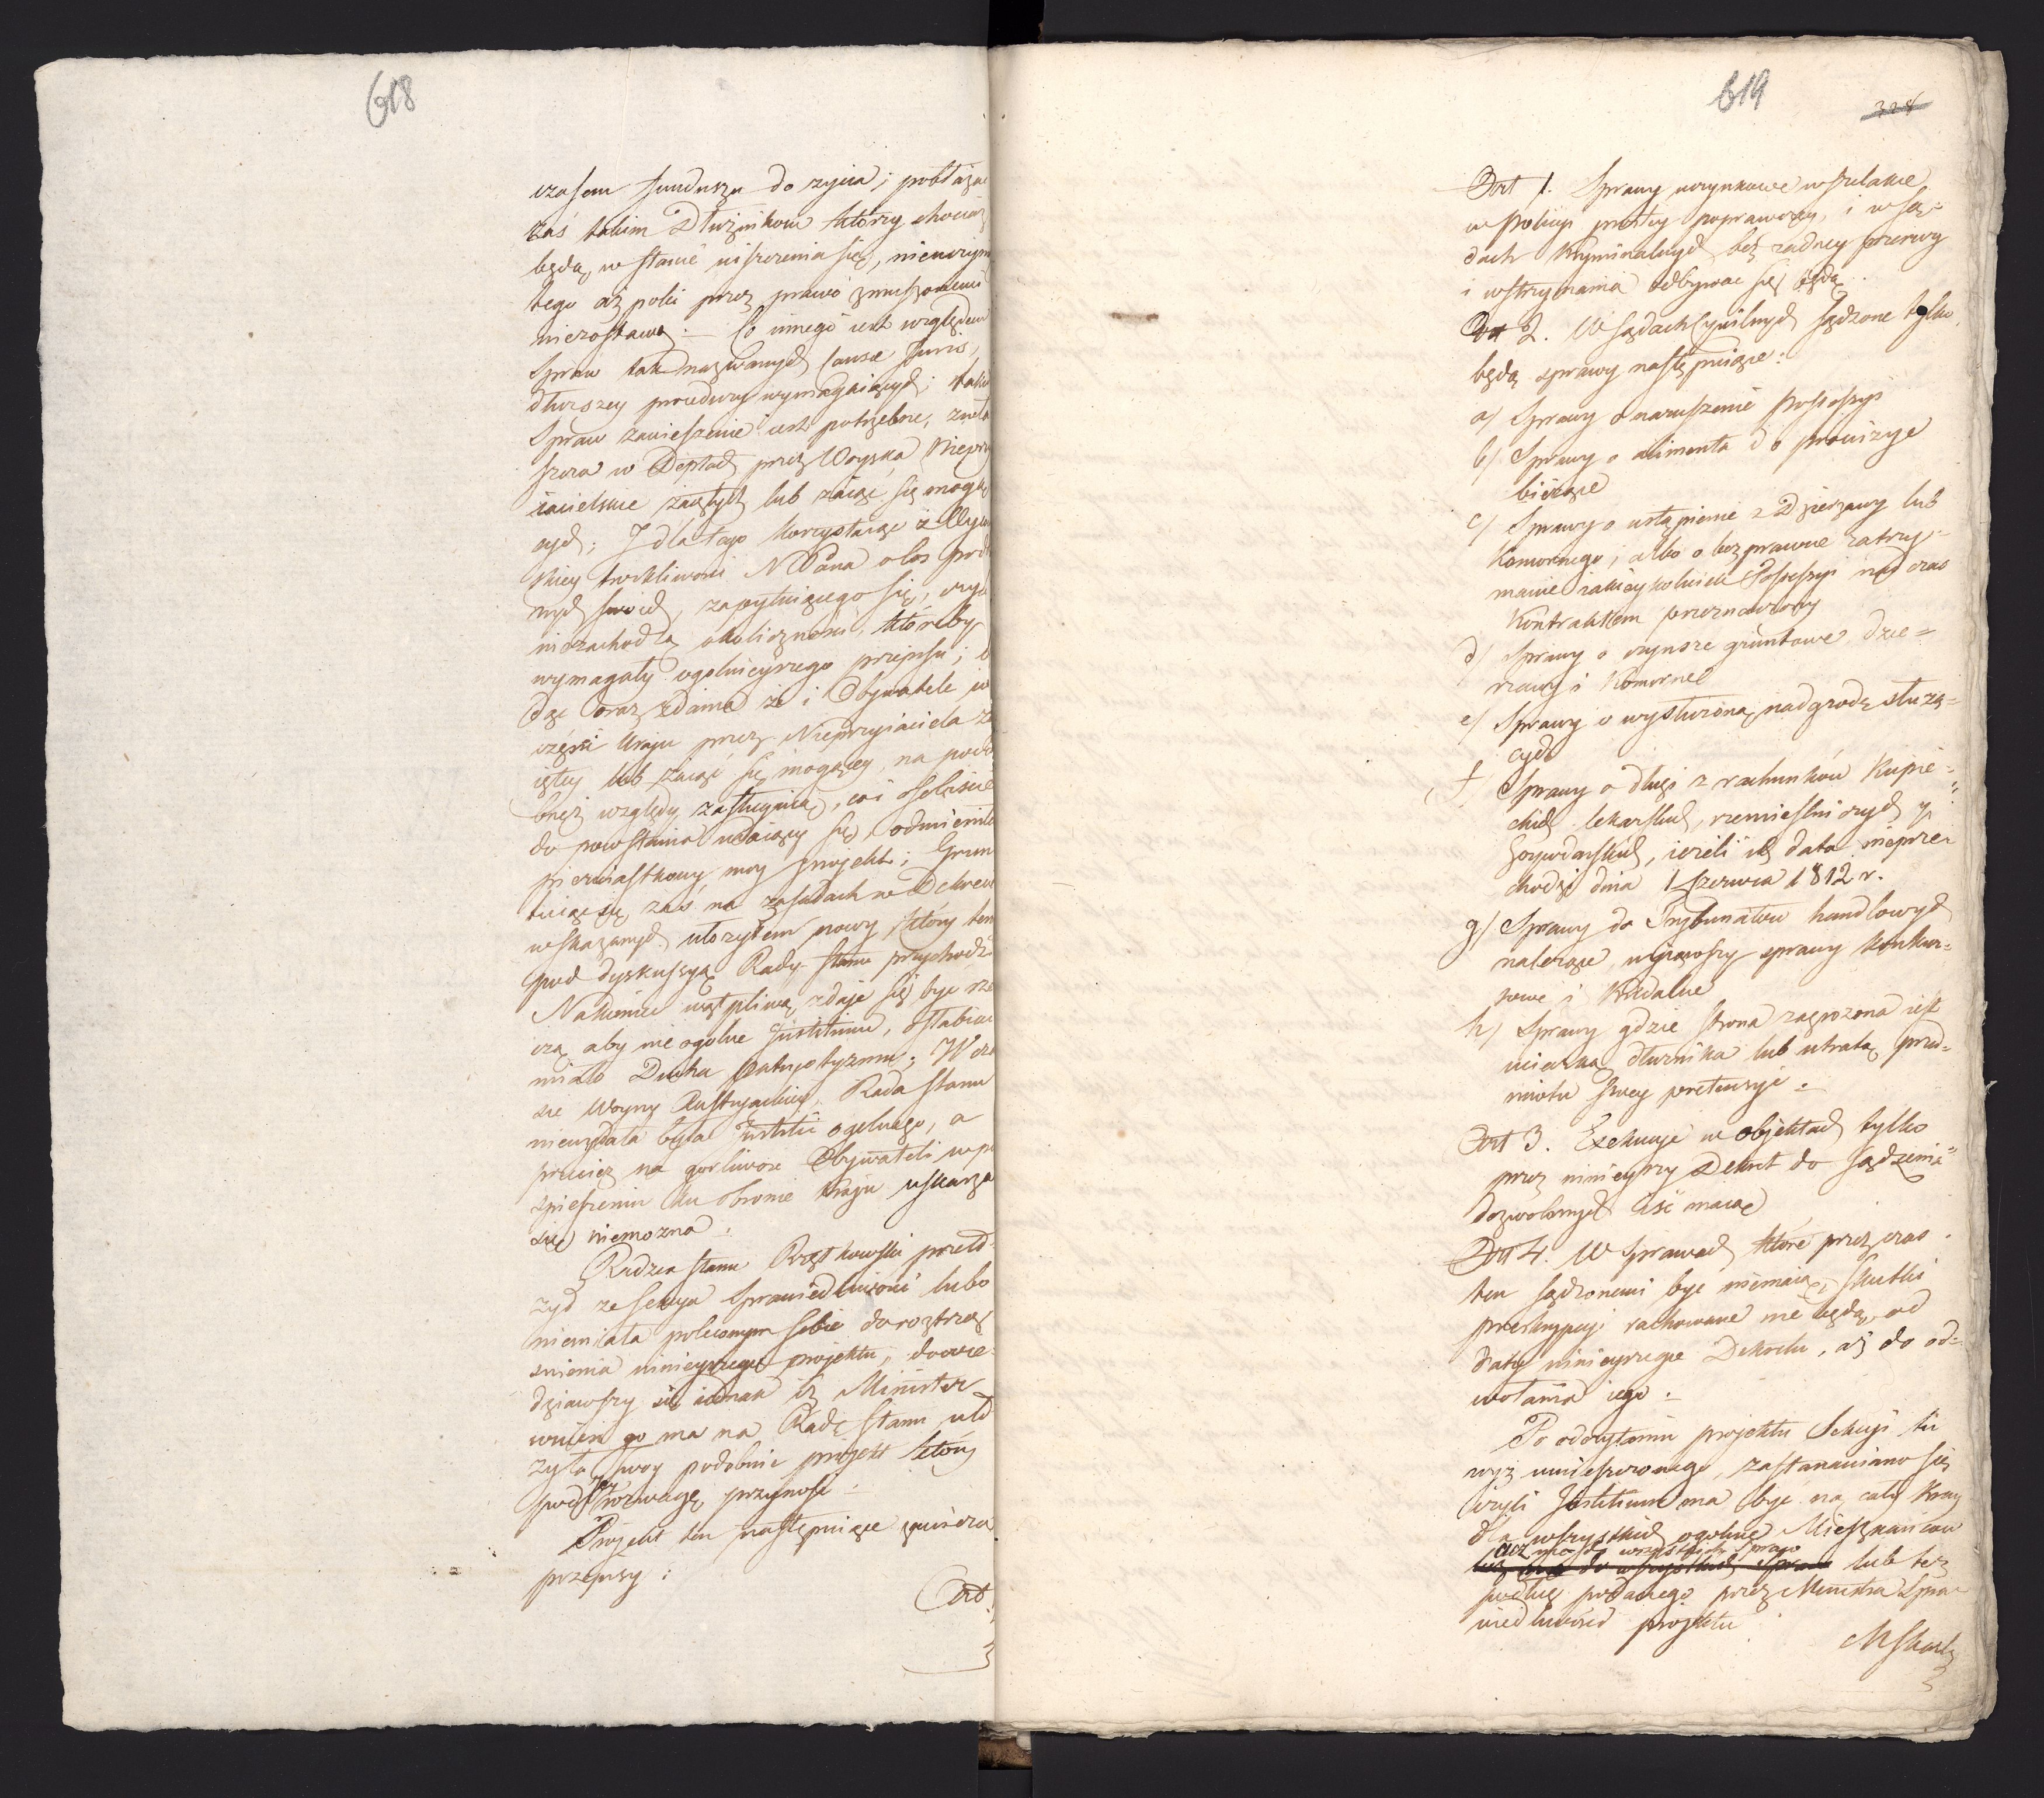 618
czasem funduszu do zycia; pobłażać
zaś takim Dłużnikom którzy chociaż
będą w stanie uiszczenia się, nieuczynią
tego aż poki przez prawo zmuszonemi
niezostaną. Co innego iest względem
Spraw tak nazwanych Causæ Juris,
dłuższey procedury wymagaiących; takich
Spraw zawieszenie iest potrzebne, zwła
szcza w Deptach przez Woyska Nieprzy
iacielskie zaiętych lub zaiąć się mogą
cych; I dla tego korzystaiąc z Oycow
skiey troskliwości N Pana o los podda
nych swoich, zapytuiącego się, czyli
niezachodzą okoliczności, któreby
wymagały ogolnieyszego przepisu;
dąc oraz zdania że i Obywatele w
części kraiu przez Nieprzyiaciela za
iętey lub zaiąć się mogącey, na podo
bneż względy zasługuią, co i osobiście
do powstania udaiący się, odmieniłem
pierwiastkowy moy projekt; Grun
tuiąc się zaś na zasadach w Dekrecie
wskazanych ułożyłem nowy, który ten
pod dyskussyą Rady Stanu przychodzi
Nakoniec wątpliwą zdaje się być rze
czą aby nie ogolne Justitium, osłabiać
miało Ducha patryotyzmu; W cza
sie Woyny Austryackiey, Rada Stanu
niewydała była Justitii ogolnego, a
przecież na gorliwość Obywateli w po
spieszeniu ku obronie Kraju uskarżać
się niemożna.
Radzca Stanu Rządkowski przeło
żył że Sekcya Sprawiedliwości lubo
niemiała poleconym sobie do roztrzą
śnienia ninieyszego projektu, dowie
dziawszy się iednak iż Minister
wnieść go ma na Radę Stanu uło
żyła swoy podobnie projekt który
pod Jey rozwagę przynosi.
Projekt ten następuiące zawiera
przepisy:
Art.
619
328
Art 1. Sprawy uczynkowe wszelakie
w Policyi prostey poprawczey, i w Są=
dach Kryminalnych bez żadney przerwy
i wstrzymania odbywać się będą.
Art 2. W Sądach Cywilnych sądzone tylko
będą sprawy następuiące:
a) Sprawy o naruszenie Possessyi
b) Sprawy o alimenta i o prowizye
bieżące
c) Sprawy o ustąpienie z Dzierżawy lub
Komornego, albo o bezprawne zatrzy=
manie iakieykolwiek Possessyi nad czas
Kontraktem przeznaczony
d) Sprawy o czynsze gruntowe, dzie=
rzawy i Komorne
e) Sprawy o wysłużoną nadgrodę służą=
cych
f Sprawy o długi z rachunków Kupie=
ckich lekarskich, rzemieślniczych y
Gospodarskich, ieżeli ich data nieprze=
chodzi dnia 1 Czerwca 1812 r.
g) Sprawy do Trybunałów handlowych
należące, wyiąwszy sprawy konkur=
sowe i Kridalne
h) Sprawy gdzie strona zagrożona iest
ucieczką dłużnika lub utratą przed=
miotu swey pretensyi.
Art 3. Exekucye w objektach tylko
przez ninieyszy Dekret do sądzenia
dozwolonych iść maią
Art 4. W Sprawach które przez czas
ten sądzonemi być niemaią, skutki
preskrypcyi rachowane nie będą, od
daty ninieyszego Dekretu, aż do od=
wołania iego.
Po odczytaniu projektu Sekcyi tu
wyż umieszczonego, zastanawiano się
czyli Justitium ma być na cały Kray
dla wszystkich ogolnie Mieszkańcow
wszystkich spraw
lub też
podług podanego przez Ministra Spra=
wiedliwości projektu